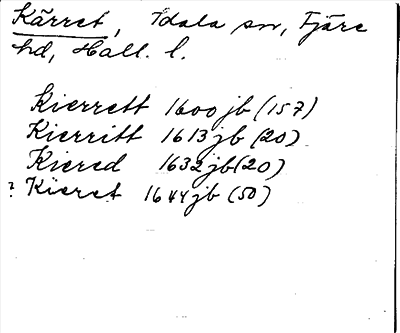 Kärret, Idala sn, Fjäre
hd, Hall. l.
Kierrett 1600 jb (157)
Kierritt 1613 jb (20)
Kiered 1632 jb (20)
? Kieret 1644 jb (50)